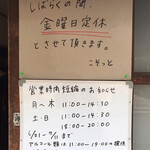 しばらくの間、
金曜日定休
とさせて頂きます。
こぞっと
営業時間短縮のお知らせ
月〜木 11:00-14:30
土日 11:00-14:30
18:00-20:00
アルコール類は11:00-19:00